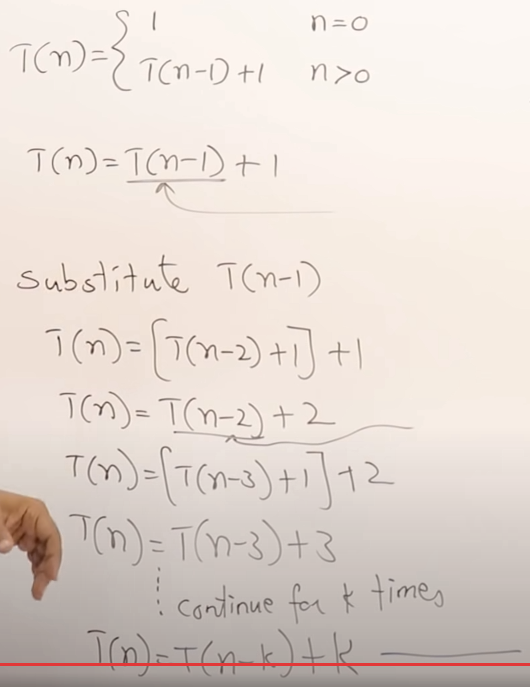 T(n)={ 1 n=0
T(n-1)+1 n>0
T(n)=T(n-1)+1
substitute T(n-1)
T(n)=[T(n-2)+1]+1
T(n)=T(n-2)+2
T(n)=[T(n-3)+1]+2
T(n)=T(n-3)+3
continue for k times
T(n)=T(n-k)+k